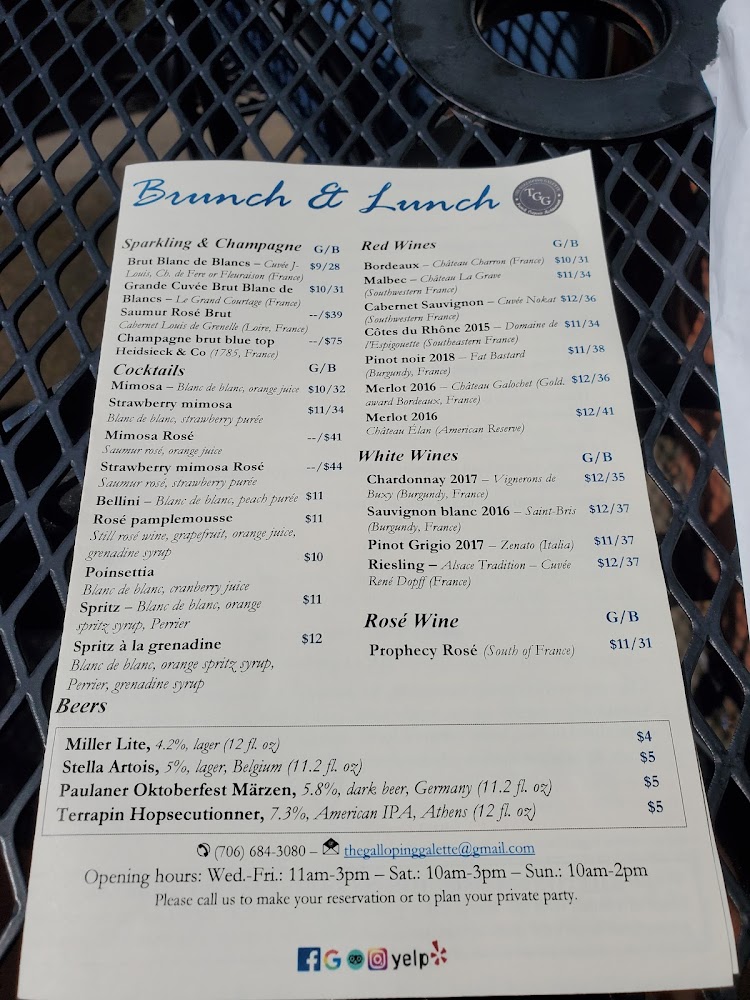 Brunch & Lunch
TGG
Sparkling & Champagne G/B
Brut Blanc de Blancs – Cuvée J- $9/28
Louis, Ch. de Fere or Fleuraison (France)
Grande Cuvée Brut Blanc de $10/31
Blancs – Le Grand Courtage (France)
Saumur Rosé Brut --/$39
Cabernet Louis de Grenelle (Loire, France)
Champagne brut blue top --/$75
Heidsieck & Co (1785, France)
Cocktails G/B
Mimosa – Blanc de blanc, orange juice $10/32
Strawberry mimosa $11/34
Blanc de blanc, strawberry purée
Mimosa Rosé --/$41
Saumur rosé, orange juice
Strawberry mimosa Rosé --/$44
Saumur rosé, strawberry purée
Bellini – Blanc de blanc, peach purée $11
Rosé pamplemousse $11
Still rosé wine, grapefruit, orange juice,
grenadine syrup
Poinsettia $10
Blanc de blanc, cranberry juice
Spritz – Blanc de blanc, orange $11
spritz syrup, Perrier
Spritz à la grenadine $12
Blanc de blanc, orange spritz syrup,
Perrier, grenadine syrup
Red Wines G/B
Bordeaux – Château Charron (France) $10/31
Malbec – Château La Grave $11/34
(Southwestern France)
Cabernet Sauvignon – Cuvée Nokat $12/36
(Southwestern France)
Côtes du Rhône 2015 – Domaine de $11/34
l'Espigouette (Southeastern France)
Pinot noir 2018 – Fat Bastard $11/38
(Burgundy, France)
Merlot 2016 – Château Galochet (Gold. $12/36
award Bordeaux, France)
Merlot 2016 $12/41
Château Élan (American Reserve)
White Wines G/B
Chardonnay 2017 – Vignerons de $12/35
Buxy (Burgundy, France)
Sauvignon blanc 2016 – Saint-Bris $12/37
(Burgundy, France)
Pinot Grigio 2017 – Zenato (Italia) $11/37
Riesling – Alsace Tradition – Cuvée $12/37
René Dopff (France)
Rosé Wine G/B
Prophecy Rosé (South of France) $11/31
Beers
Miller Lite, 4.2%, lager (12 fl. oz) $4
Stella Artois, 5%, lager, Belgium (11.2 fl. oz) $5
Paulaner Oktoberfest Märzen, 5.8%, dark beer, Germany (11.2 fl. oz) $5
Terrapin Hopsecutionner, 7.3%, American IPA, Athens (12 fl. oz) $5
(706) 684-3080 – thegallopinggalette@gmail.com
Opening hours: Wed.-Fri.: 11am-3pm – Sat.: 10am-3pm – Sun.: 10am-2pm
Please call us to make your reservation or to plan your private party.
yelp